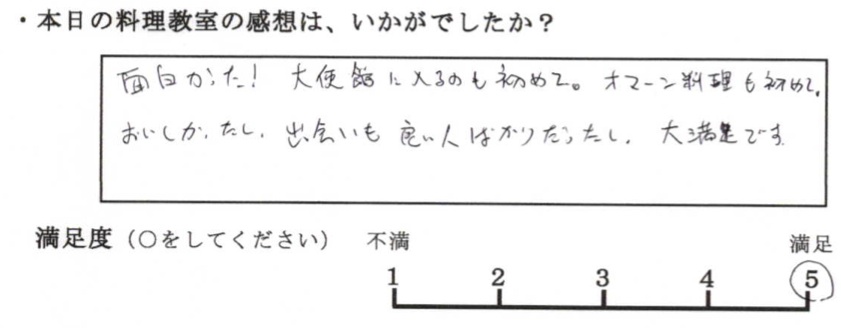 ・本日の料理教室の感想は、いかがでしたか？
面白かった！ 大使館に入るのも初めて。オマーン料理も初めて。
おいしかったし、出会いも良い人ばかりだったし、大満足です
満足度（○をしてください） 不満 満足
1 2 3 4 5